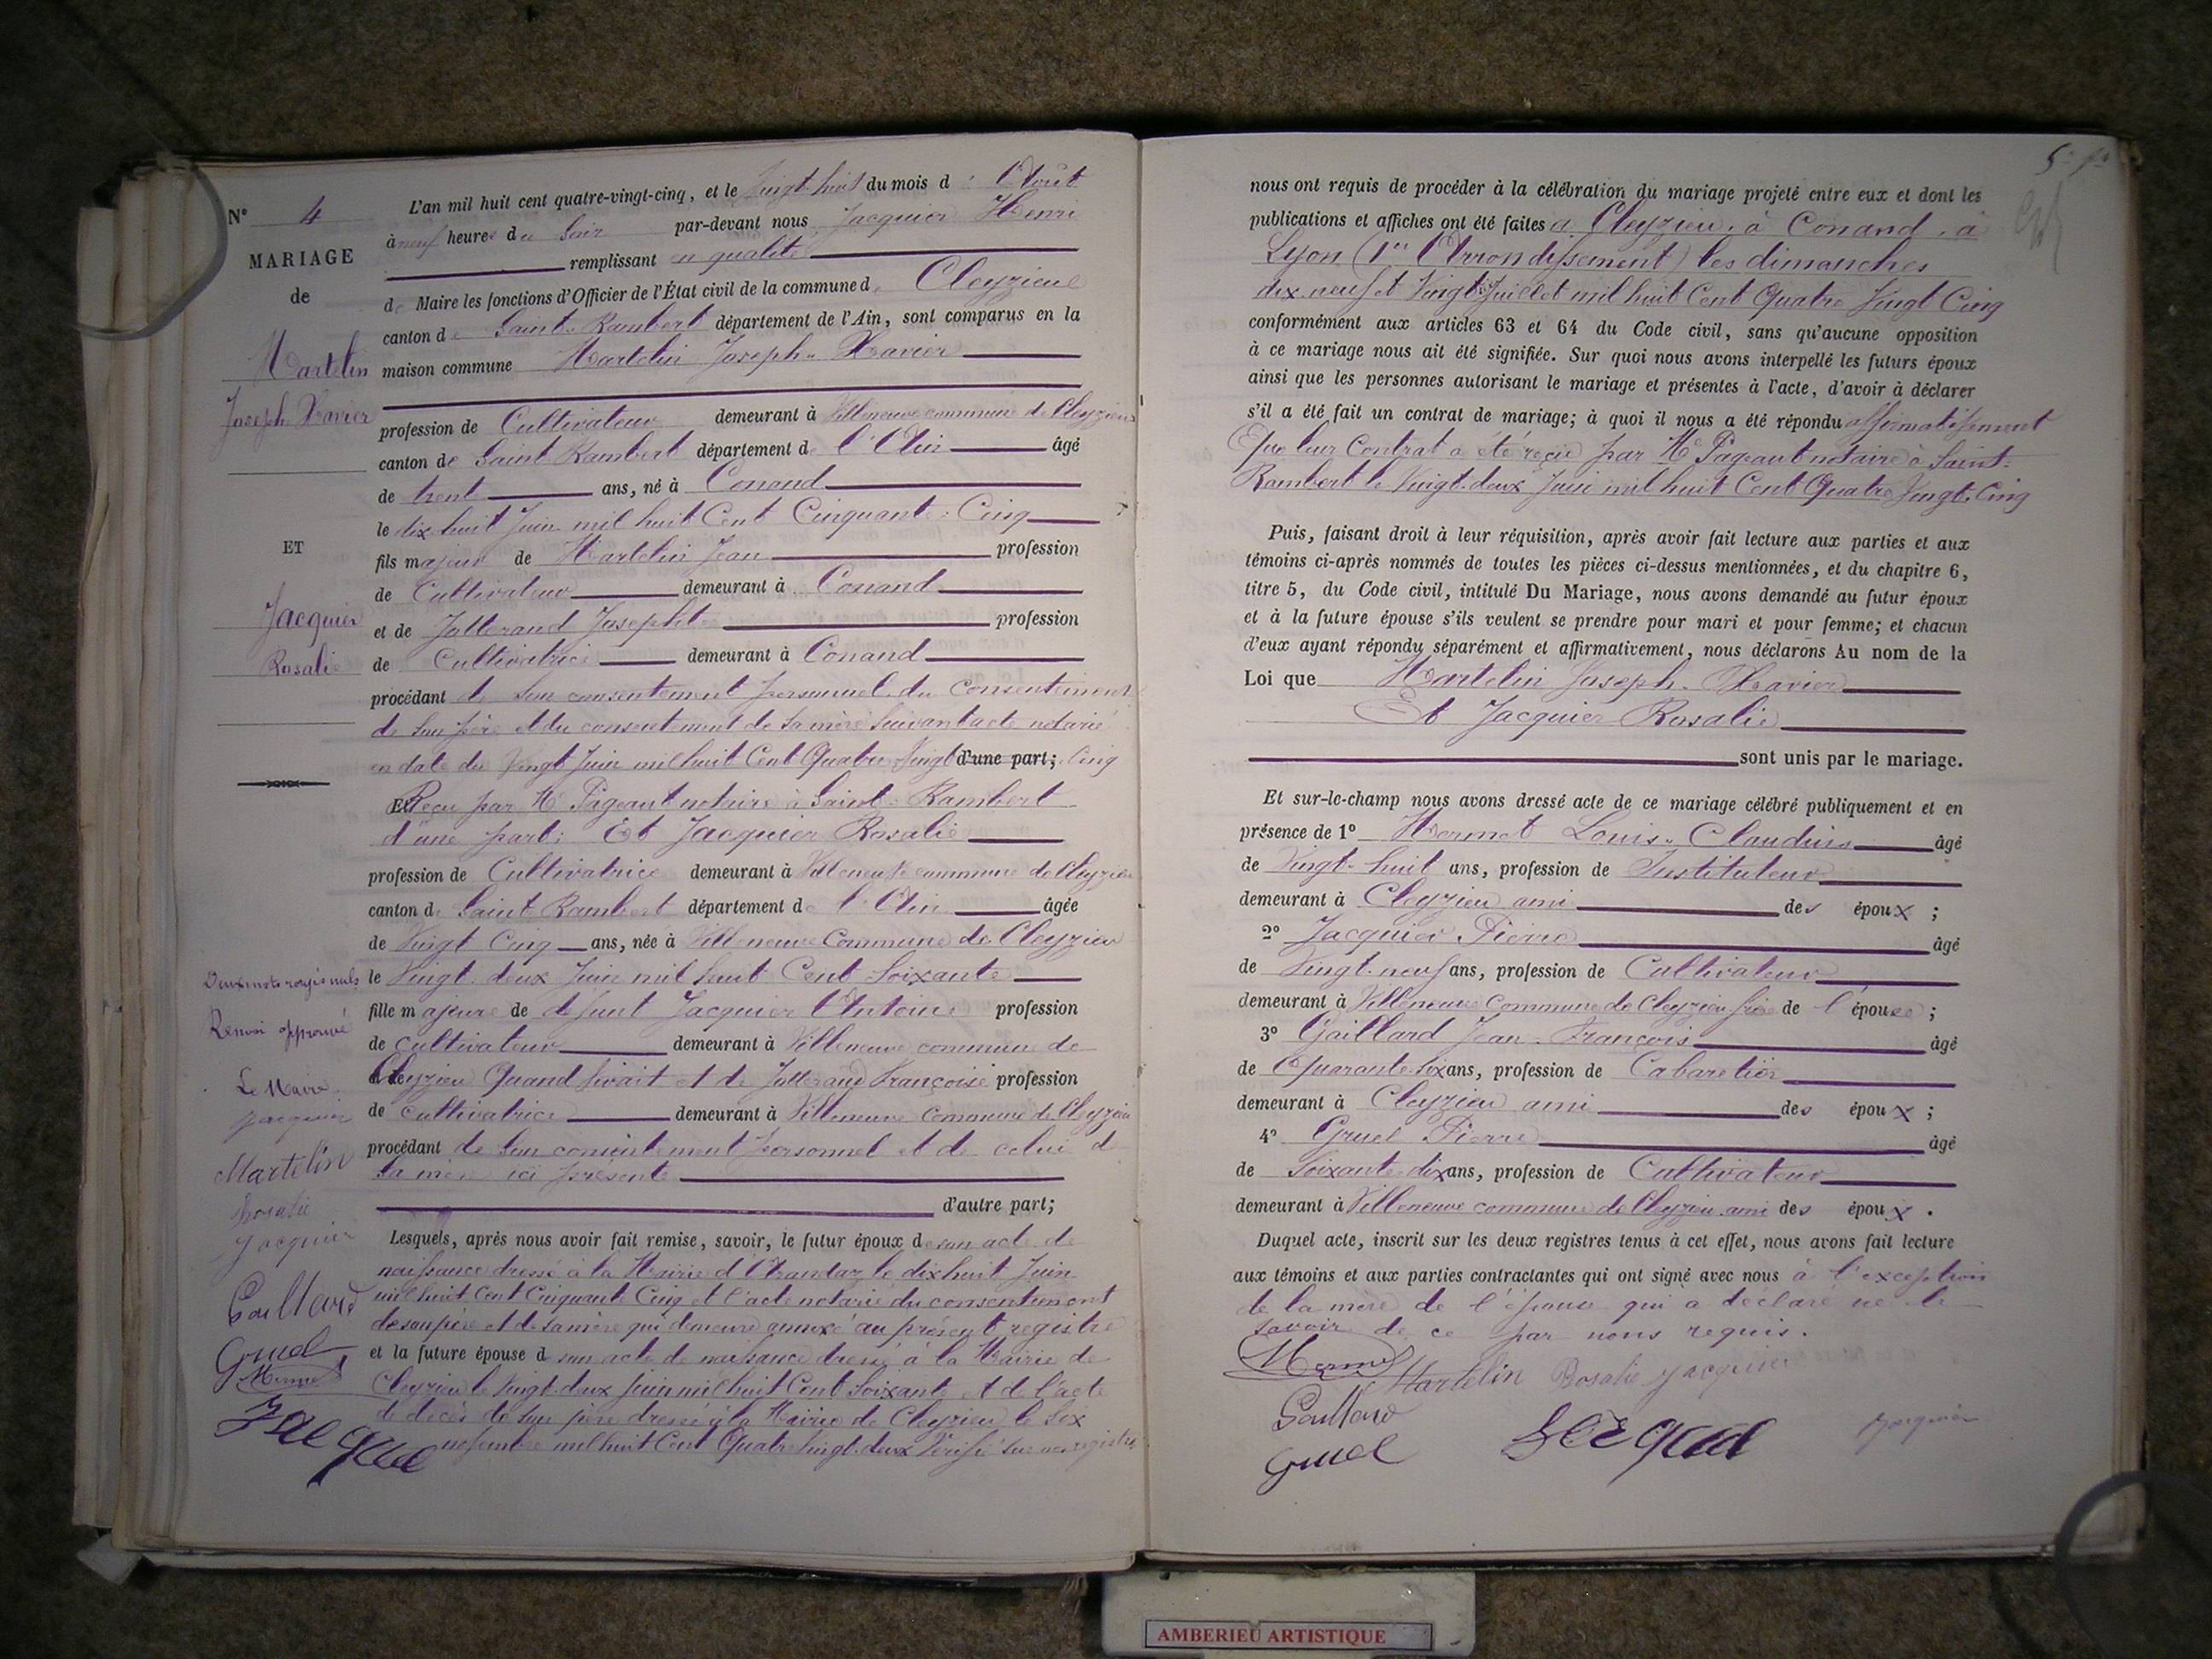 N° 4
MARIAGE
de
Martelin
Joseph Xavier
ET
Jacquier
Rosalie
Deux mots rayés nuls
Renvoi approuvé
Le Maire
Jacquier
Martelin
Rosalie
Jacquier
Gaillard
Gruel
L'an mil huit cent quatre-vingt-cinq, et le vingt-huit du mois d' Août
à neuf heures du soir par-devant nous Jacquier Henri
remplissant en qualité
de Maire les fonctions d'Officier de l'État civil de la commune de Cleyzieu
canton de Saint-Rambert département de l'Ain, sont comparus en la
maison commune Martelin Joseph-Xavier
profession de Cultivateur demeurant à Villeneuve commune de Cleyzieu
canton de Saint Rambert département de l'Ain âgé
de trent ans, né à Conand
le dix huit Juin mil huit Cent Cinquante-Cinq
fils majeur de Martelin Jean profession
de Cultivateur demeurant à Conand
et de Jolterand Josephte profession
de Cultivatrice demeurant à Conand
procédant de son consentement personnel du consentement
de son père et du consentement de sa mère suivant acte notarié
en date du Vingt Juin mil huit Cent Quatre Vingt d'une part; Cinq
Et Reçu par Me Pageaut notaire à Saint-Rambert
d'une part; Et Jacquier Rosalie
profession de Cultivatrice demeurant à Villeneuve commune de Cleyzieu
canton de Saint Rambert département de l'Ain âgée
de Vingt Cinq ans, née à Villeneuve Commune de Cleyzieu
le Vingt-deux Juin mil huit Cent Soixante
fille majeure de défunt Jacquier Antoine profession
de cultivateur demeurant à Villeneuve commune de
Cleyzieu Quand vivait et de Jolterand Françoise profession
de cultivatrice demeurant à Villeneuve commune de Cleyzieu
procédant de son consentement personnel et de celui de
sa mère ici présente
d'autre part;
Lesquels, après nous avoir fait remise, savoir, le futur époux de son acte de
naissance dressé à la Mairie d'Arandaz le dix huit Juin
mil huit Cent Cinquante Cinq et l'acte notarié du consentement
de son père et de sa mère qui demeure annexé au présent registre
et la future épouse de son acte de naissance dressé à la Mairie de
Cleyzieu le Vingt-deux Juin mil huit Cent Soixante et de l'acte
de décès de son père dressé à la Mairie de Cleyzieu le six
novembre mil huit Cent Quatre Vingt-deux Vérifié sur nos registres
nous ont requis de procéder à la célébration du mariage projeté entre eux et dont les
publications et affiches ont été faites à Cleyzieu, à Conand, à
Lyon (1er Arrondissement) les dimanches
dix neuf et Vingt-six Juillet mil huit Cent Quatre Vingt Cinq
conformément aux articles 63 et 64 du Code civil, sans qu'aucune opposition
à ce mariage nous ait été signifiée. Sur quoi nous avons interpellé les futurs époux
ainsi que les personnes autorisant le mariage et présentes à l'acte, d'avoir à déclarer
s'il a été fait un contrat de mariage; à quoi il nous a été répondu affirmativement
Que leur Contrat a été reçu par Me Pageaut notaire à Saint-
Rambert le Vingt-deux Juin mil huit Cent Quatre Vingt-Cinq
Puis, faisant droit à leur réquisition, après avoir fait lecture aux parties et aux
témoins ci-après nommés de toutes les pièces ci-dessus mentionnées, et du chapitre 6,
titre 5, du Code civil, intitulé Du Mariage, nous avons demandé au futur époux
et à la future épouse s'ils veulent se prendre pour mari et pour femme; et chacun
d'eux ayant répondu séparément et affirmativement, nous déclarons Au nom de la
Loi que Martelin Joseph-Xavier
Et Jacquier Rosalie
sont unis par le mariage.
Et sur-le-champ nous avons dressé acte de ce mariage célébré publiquement et en
présence de 1° Mermet Louis-Claudius âgé
de Vingt-huit ans, profession de Instituteur
demeurant à Cleyzieu ami des époux ;
2° Jacquier Pierre âgé
de Vingt-neuf ans, profession de Cultivateur
demeurant à Villeneuve Commune de Cleyzieu frère de l'épouse ;
3° Gaillard Jean-François âgé
de Quarante-six ans, profession de Cabaretier
demeurant à Cleyzieu ami des époux ;
4° Gruel Pierre âgé
de Soixante-dix ans, profession de Cultivateur
demeurant à Villeneuve commune de Cleyzieu ami des époux .
Duquel acte, inscrit sur les deux registres tenus à cet effet, nous avons fait lecture
aux témoins et aux parties contractantes qui ont signé avec nous à l'exception
de la mère de l'épouse qui a déclaré ne le
savoir de ce par nous requis.
Martelin Rosalie Jacquier
Gaillard
Gruel
Jacquier
AMBERIEU ARTISTIQUE